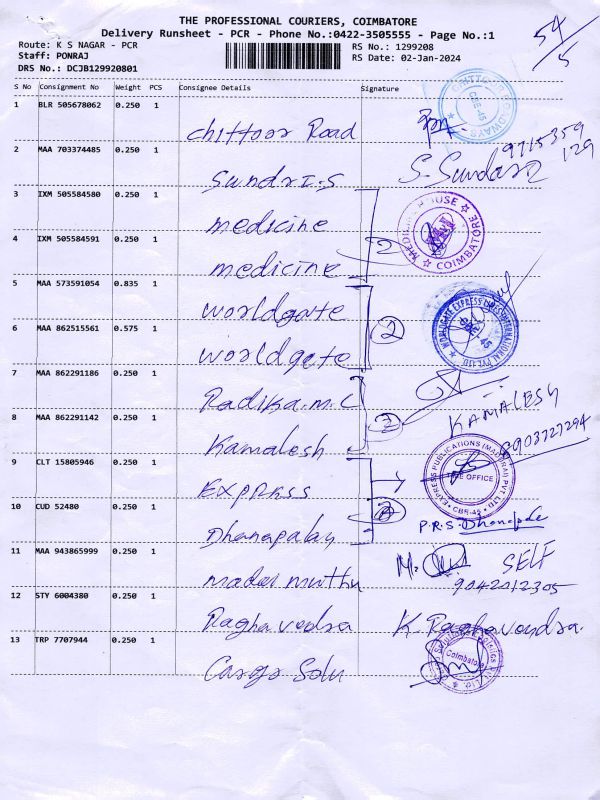 THE PROFESSIONAL COURIERS, COIMBATORE
Delivery Runsheet - PCR - Phone No.:0422-3505555 - Page No.:1
54/5
Route: K S NAGAR - PCR
RS No.: 1299208
Staff: PONRAJ
RS Date: 02-Jan-2024
DRS No.: DCJB129920801
S No Consignment No Weight PCS Consignee Details Signature
1 BLR 505678062 0.250 1 Chittoor Road
2 MAA 703374485 0.250 1 Sundr I.S S. Sundar 9715359 129
3 IXM 505584580 0.250 1 medicine
MEDICINE HOUSE COIMBATORE
4 IXM 505584591 0.250 1 medicine 2
5 MAA 573591054 0.835 1 worldgate
WORLDGATE EXPRESS LINES INTERNATIONAL PVT LTD CBE-45
6 MAA 862515561 0.575 1 worldgate 2
7 MAA 862291186 0.250 1 Radika.m.C
KAMALESH
8 MAA 862291142 0.250 1 Kamalesh 2 8903727294
9 CLT 15805946 0.250 1 Express
EXPRESS PUBLICATIONS (MADURAI) PVT LTD CBE-45
10 CUD 52480 0.250 1 Dhanapalan P.R.S.
11 MAA 943865999 0.250 1 madas muthu SELF
9042012305
12 STY 6004380 0.250 1 Raghavendra K. Raghavendra.
13 TRP 7707944 0.250 1 Cargo Solu
Coimbatore